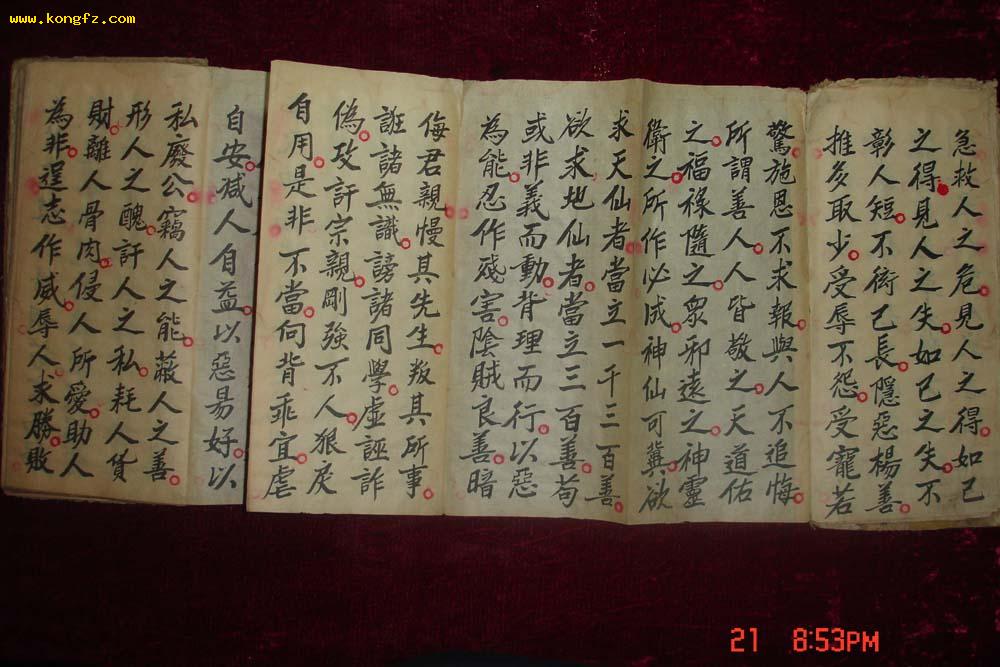 www.kongfz.com
急救人之危見人之得如己
之得見人之失如己之失不
彰人短不衒己長隱惡楊善
推多取少受辱不怨受寵若
驚施恩不求報與人不追悔
所謂善人人皆敬之天道佑
之福祿隨之衆邪遠之神靈
衛之所作必成神仙可冀欲
求天仙者當立一千三百善
欲求地仙者當立三百善苟
或非義而動背理而行以惡
為能忍作殘害陰賊良善暗
侮君親慢其先生叛其所事
誑諸無識謗諸同學虛誣詐
偽攻訐宗親剛強不人狠戾
自用是非不當向背乖宜虐
自安減人自益以惡易好以
私廢公竊人之能蔽人之善
形人之醜訐人之私耗人貨
財離人骨肉侵人所愛助人
為非逞志作威辱人求勝敗
21 8:53PM